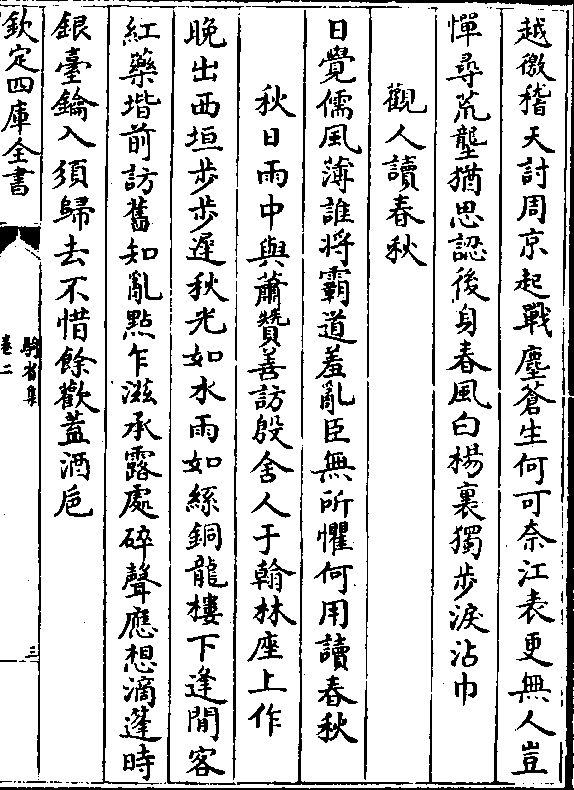 越徼稽天討周京起戰塵蒼生何可奈江表更無人豈
憚尋荒壟猶思認後身春風白楊裏獨步淚沾巾
觀人讀春秋
日覺儒風薄誰將霸道羞亂臣無所懼何用讀春秋
秋日雨中與蕭贊善訪殷舍人于翰林座上作
晚出西垣步步遲秋光如水雨如絲銅龍樓下逢閒客
紅藥堦前訪舊知亂點乍滋承露處碎聲應想滴蓬時
銀臺鑰入須歸去不惜餘歡盡酒巵
欽定四庫全書
騎省集
卷二
三